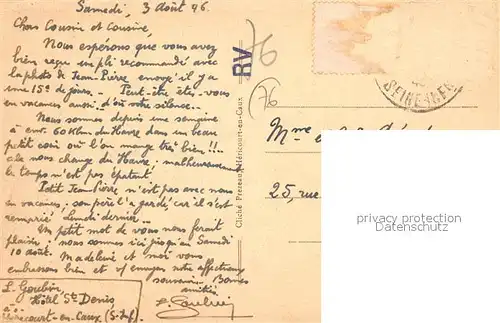 Samedi, 3 Août 46.
Chers Cousin et Cousine,
Nous espérons que vous avez
bien reçu un pli recommandé avec
la photo de Jean-Pierre envoyé il y a
une 15e de jours. - Peut-être êtes-vous
en vacances aussi, d'où votre silence...
Nous sommes depuis une semaine
à env. 60 Klm du Havre dans un beau
petit coin où l'on mange très bien !!!
cela nous change du Havre, malheureusement
le temps n'est pas épatant.
Petit Jean-Pierre n'est pas avec nous
en vacances, son père l'a gardé car il s'est
remarié Lundi dernier...
Un petit mot de vous nous ferait
plaisir, nous sommes ici jusqu'au Samedi
10 août. Madeleine et moi vous
embrassons bien et v/ envoyons notre affectueux
souvenir. Bonnes
amitiés.
L. Goubin
L. Goubin,
Hôtel St Denis
à
Héricourt-en-Caux (S. Inf.)
RV
76
(76
Cliché Prezeau, Héricourt-en-Caux
SEINE
Mme
25, rue
privacy protection
Datenschutz